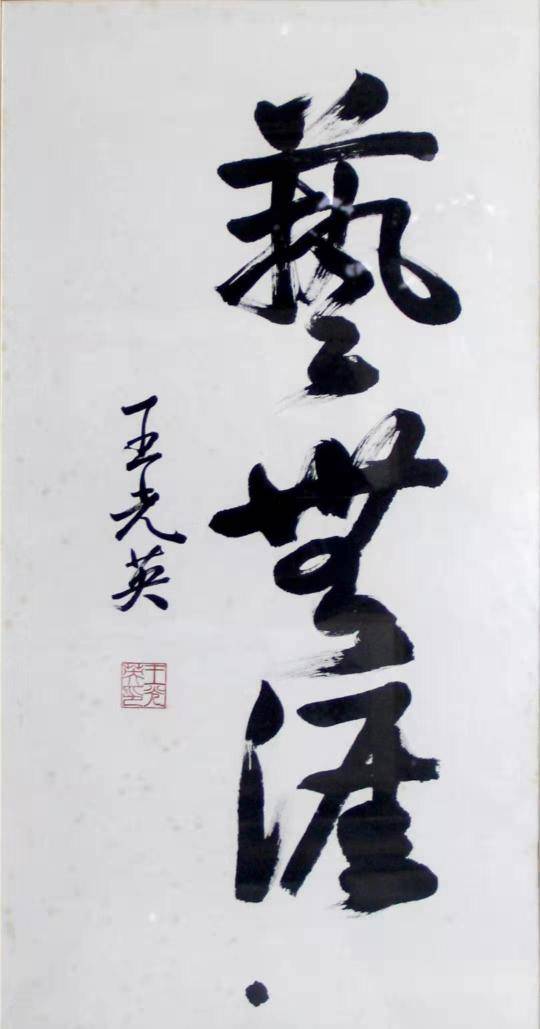 藝無涯
王光英
王光英印